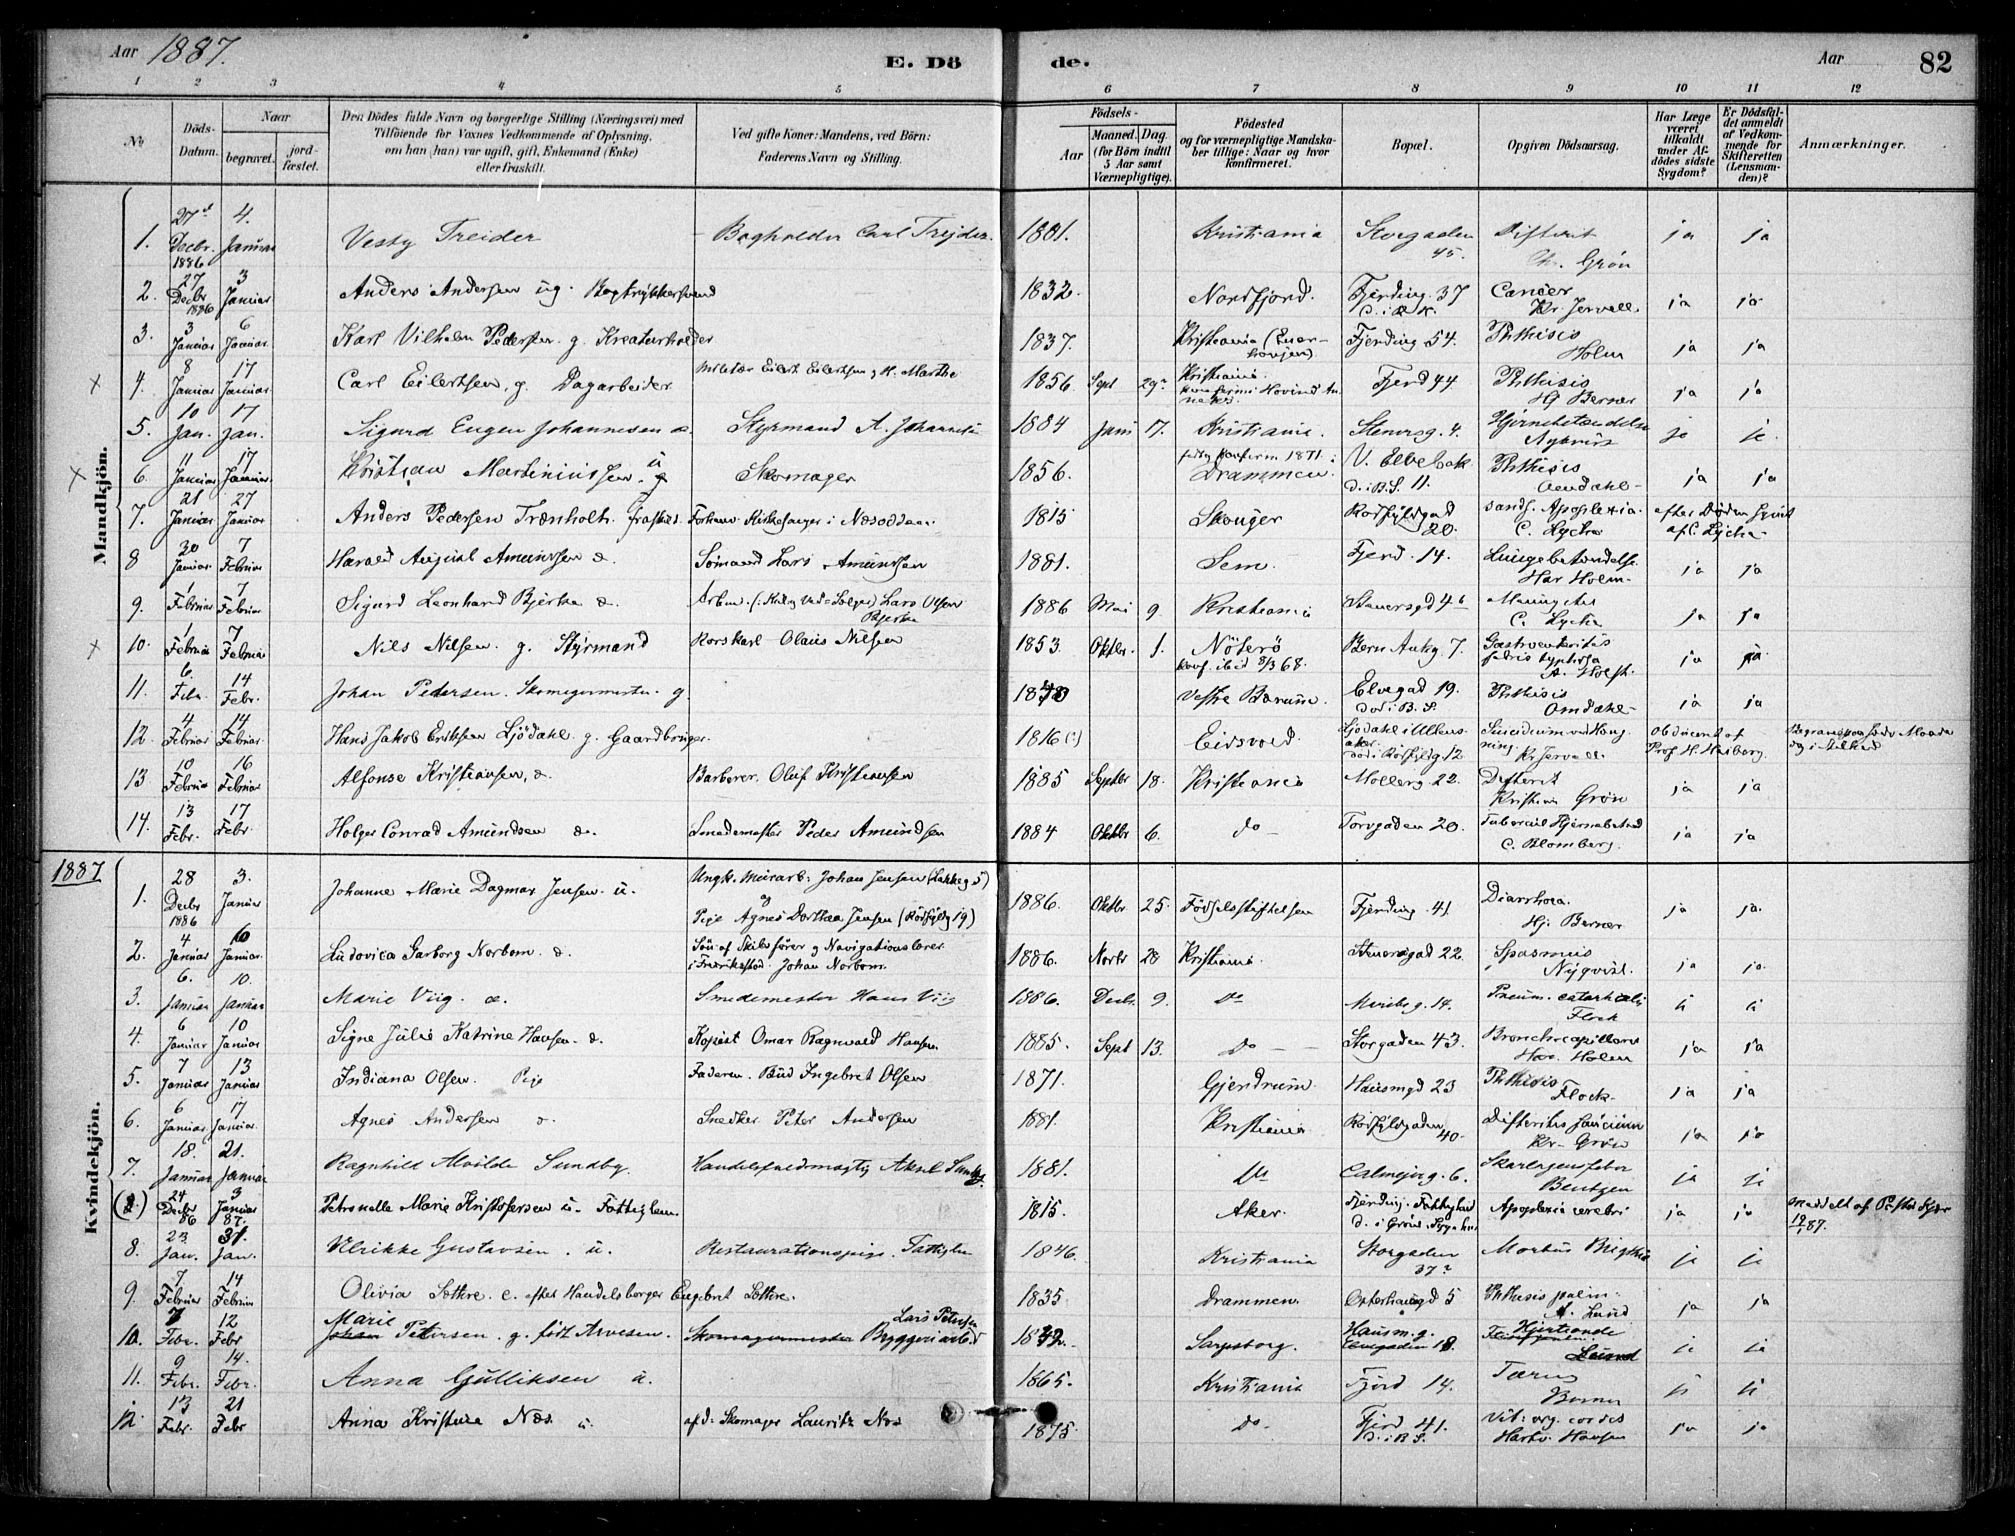 Aar 1887. E. Döde. Aar 82
1 2 3 4 5 6 7 8 9 10 11 12
No
Döds-Datum.
Naar
begravet.
jordfæstet.
Den Dödes fulde Navn og borgerlige Stilling (Næringsvei) med
Tilföiende for Voxnes Vedkommende af Oplysning,
om han (hun) var ugift, gift, Enkemand (Enke)
eller fraskilt.
Ved gifte Koner: Mandens, ved Börn:
Faderens Navn og Stilling.
Födsels-
Aar
Maaned. Dag.
(for Börn indtil
5 Aar samt
Værnepligtige).
Födested
og for værnepligtige Mandskaber tillige: Naar og hvor
konfirmeret.
Bopæl.
Opgiven Dödsaarsag.
Har Læge
været
tilkaldt
under Afdödes sidste
Sygdom?
Er Dödsfaldet anmeldt
af Vedkommende for
Skifteretten
(Lensmanden)?
Anmærkninger.
Mandkjön.
1. 27 Decbr. 1886 4. Januar Vesty Treider Bogholder Carl Treider. 1881. Kristiania Storgaden 45. Difterit Grön ja ja
2. 27 Decbr 1886 3 Januar Anders Andersen ug. Bogtrykkersvend 1832. Nordfjord. Fjerding. 37 Cancer Kr. Jervell. ja ja
3. 3 Januar 6 Januar Karl Vilhelm Pedersen g. Kreaturholder 1837. Kristiania Fjerding 54. Phthisis Holm ja ja
4. 8 Januar 17 Januar Carl Eilertsen g. Dagarbeider Eilert Eilertsen g. H. Marthe 1856. Sept 29 Kristiania. Fjerd 44 Phthisis Hj Berner ja ja
5. 10 Jan. 17 Jan. Sigurd Eugen Johannesen Styrmand A. Johannesen 1884 Juni 17. Kristiania. Stenersg. 4. Hjernebetændelse Nykvist ja ja
6. 11 Januar 17 Januar Kristian Martiniussen Skomager 1856. Drammen. V. Elvebak 11. D. i B. S. Phthisis Omdahl ja ja
7. 21 Januar 27 Januar Anders Pedersen Trænholt. fraskilt. Forhenv. Kirkesanger i Næsodden 1815 Skouger 20. sands. Apoplexia. C. Lycha efter Döden synet af C. Lycha
8 30 Januar 7 Februar Harald August Amundsen Sömand Lars Amundsen 1881. Sem. Fjerd. 14. Lungebetændelse. Har Holm ja ja
9. 1 Februar 7 Februar Sigurd Leonhard Bjerke Lars Olsen Bjerke 1886 Mai 9. Kristiania Stenersgd 4 Meningitis C. Lycha ja ja
10. 1 Februar 7 Februar Nils Nilsen. g. Styrmand Korskarl Olaus Nilsen 1853. Oktbr. 1. Nöterö konf. ibid 8/3 68. Bern Ankg 7. Gastroenteritis A. Holst. ja ja
11. 6. Febr. 14 Febr. Johan Pedersen. Skomagermester g. Vestre Bærum Elvegad 19. Död i B. S. Phthisis Omdahl ja ja
12. 4 Februar 14 Februar Hans Jakob Eriksen Ljödahl g. Gaardbruger. 1816 Eidsvold. Ljödahl i Ullensaker. Suicidium ved Hængning Kr Jervell. Obducent af Prof. H. Heiberg.
13 10 Februar 16 Februar Alfonse Kristiansen. Barberer. Oluf Kristiansen 1885 Septbr 18. Kristiania Mollerg. 22. Difterit Kristian Grön ja ja
14. 13 Febr. 17 Febr Holger Conrad Amundsen Smedemester Peder Amundsen 1884 Oktbr 6. do Torvgaden 20. C. Blomberg. ja ja
1887
Kvindekjön.
1. 28 Decbr 1886 3. Januar Johanne Marie Dagmar Jensen. u. Ungk. Murarb. Johan Jensen og Pige Agnes Dorthea Jensen 1886. Oktbr 25. Födselsstiftelsen Fjerding. 41. Diarrhoea. Hj. Berner ja ja.
2. 4 Januar 10 Januar. Ludovica Garborg Norbom. Skibsförer og Navigationslærer i Fredrikstad. Johan Norbom. 1886. Novbr 28 Kristiania Stenersgad 22. Spasmus Nyqvist. ja ja.
3. 6. Januar 10. Januar Marie Viig. Smedemester Hans Viig 1886. Decbr. 9. Do 14. Pneum. catarhalis Flock ja ja
4. 6 Januar 10 Januar Signe Julie Katrine Hansen. Kopist Omar Ragnvald Hansen. 1885. Sept 13. Do Storgaden 43. Har. Holm ja ja
5. 7 Januar 13 Januar Indiana Olsen. Pige Faderen. Bud Ingebret Olsen 1871. Gjerdrum. Hausmgd 23 Phthisis Flock. ja ja
6. 6 Januar 17 Januar. Agnes Andersen Snedker Peter Andersen 1881. Kristiania 40. Difteritis faucium Kr. Grön ja ja
7. 18. Januar 21. Januar Ragnhild Alvilde Sundby. Handelsfuldmægtig Aksel Sundby. 1881. Do Calmeyerg. 6. Skarlagensfeber Bentzen ja ja
24 Decbr 86 3 Januar 87. Petronelle Marie Kristofersen u. Fattiglem. 1815. Aker. Apoplexia cerebri ja ja
8. 23. Jan. 31. Jan. Ulrikke Gustavsen. u. Restaurationspige. Fattiglem 1846. Kristiania Storgaden 37 Morbus Brigthii ja ja
9. 7. Februar 14 Februar Olivia Sethre. e. efter Handelsborger Engebret Sethre. 1835. Drammen. Osterhausgd 5 Phthisis pulm. Lund ja ja
10. 7 Febr. 12 Febr Marie Petersen. g. född Arvesen. Skomagermester Lars Petersen Bryggeriarbeid Sarpsborg. Hausm. g. 18. Lund ja ja
11. 9 Febr. 14. Febr. Anna Gulliksen u. 1865. Kristiania Fjerd 14. Tæring ja ja
12. 13 Febr. 21 Febr Anna Kristine Næs. u. afd. Skomager Lauritz Næs 1875. do Fjerd 41. D. i B. S. Vit. org. cordis Hartv. Hansen ja ja